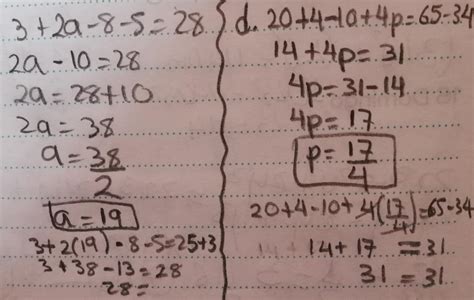 3 + 2a - 8 - 5 = 28
2a - 10 = 28
2a = 28 + 10
2a = 38
a = 38/2
a = 19
3 + 2(19) - 8 - 5 = 25 + 3
3 + 38 - 13 = 28
28 =
d. 20 + 4 - 10 + 4p = 65 - 34
14 + 4p = 31
4p = 31 - 14
4p = 17
p = 17/4
20 + 4 - 10 + 4(17/4) = 65 - 34
14 + 17 = 31
31 = 31